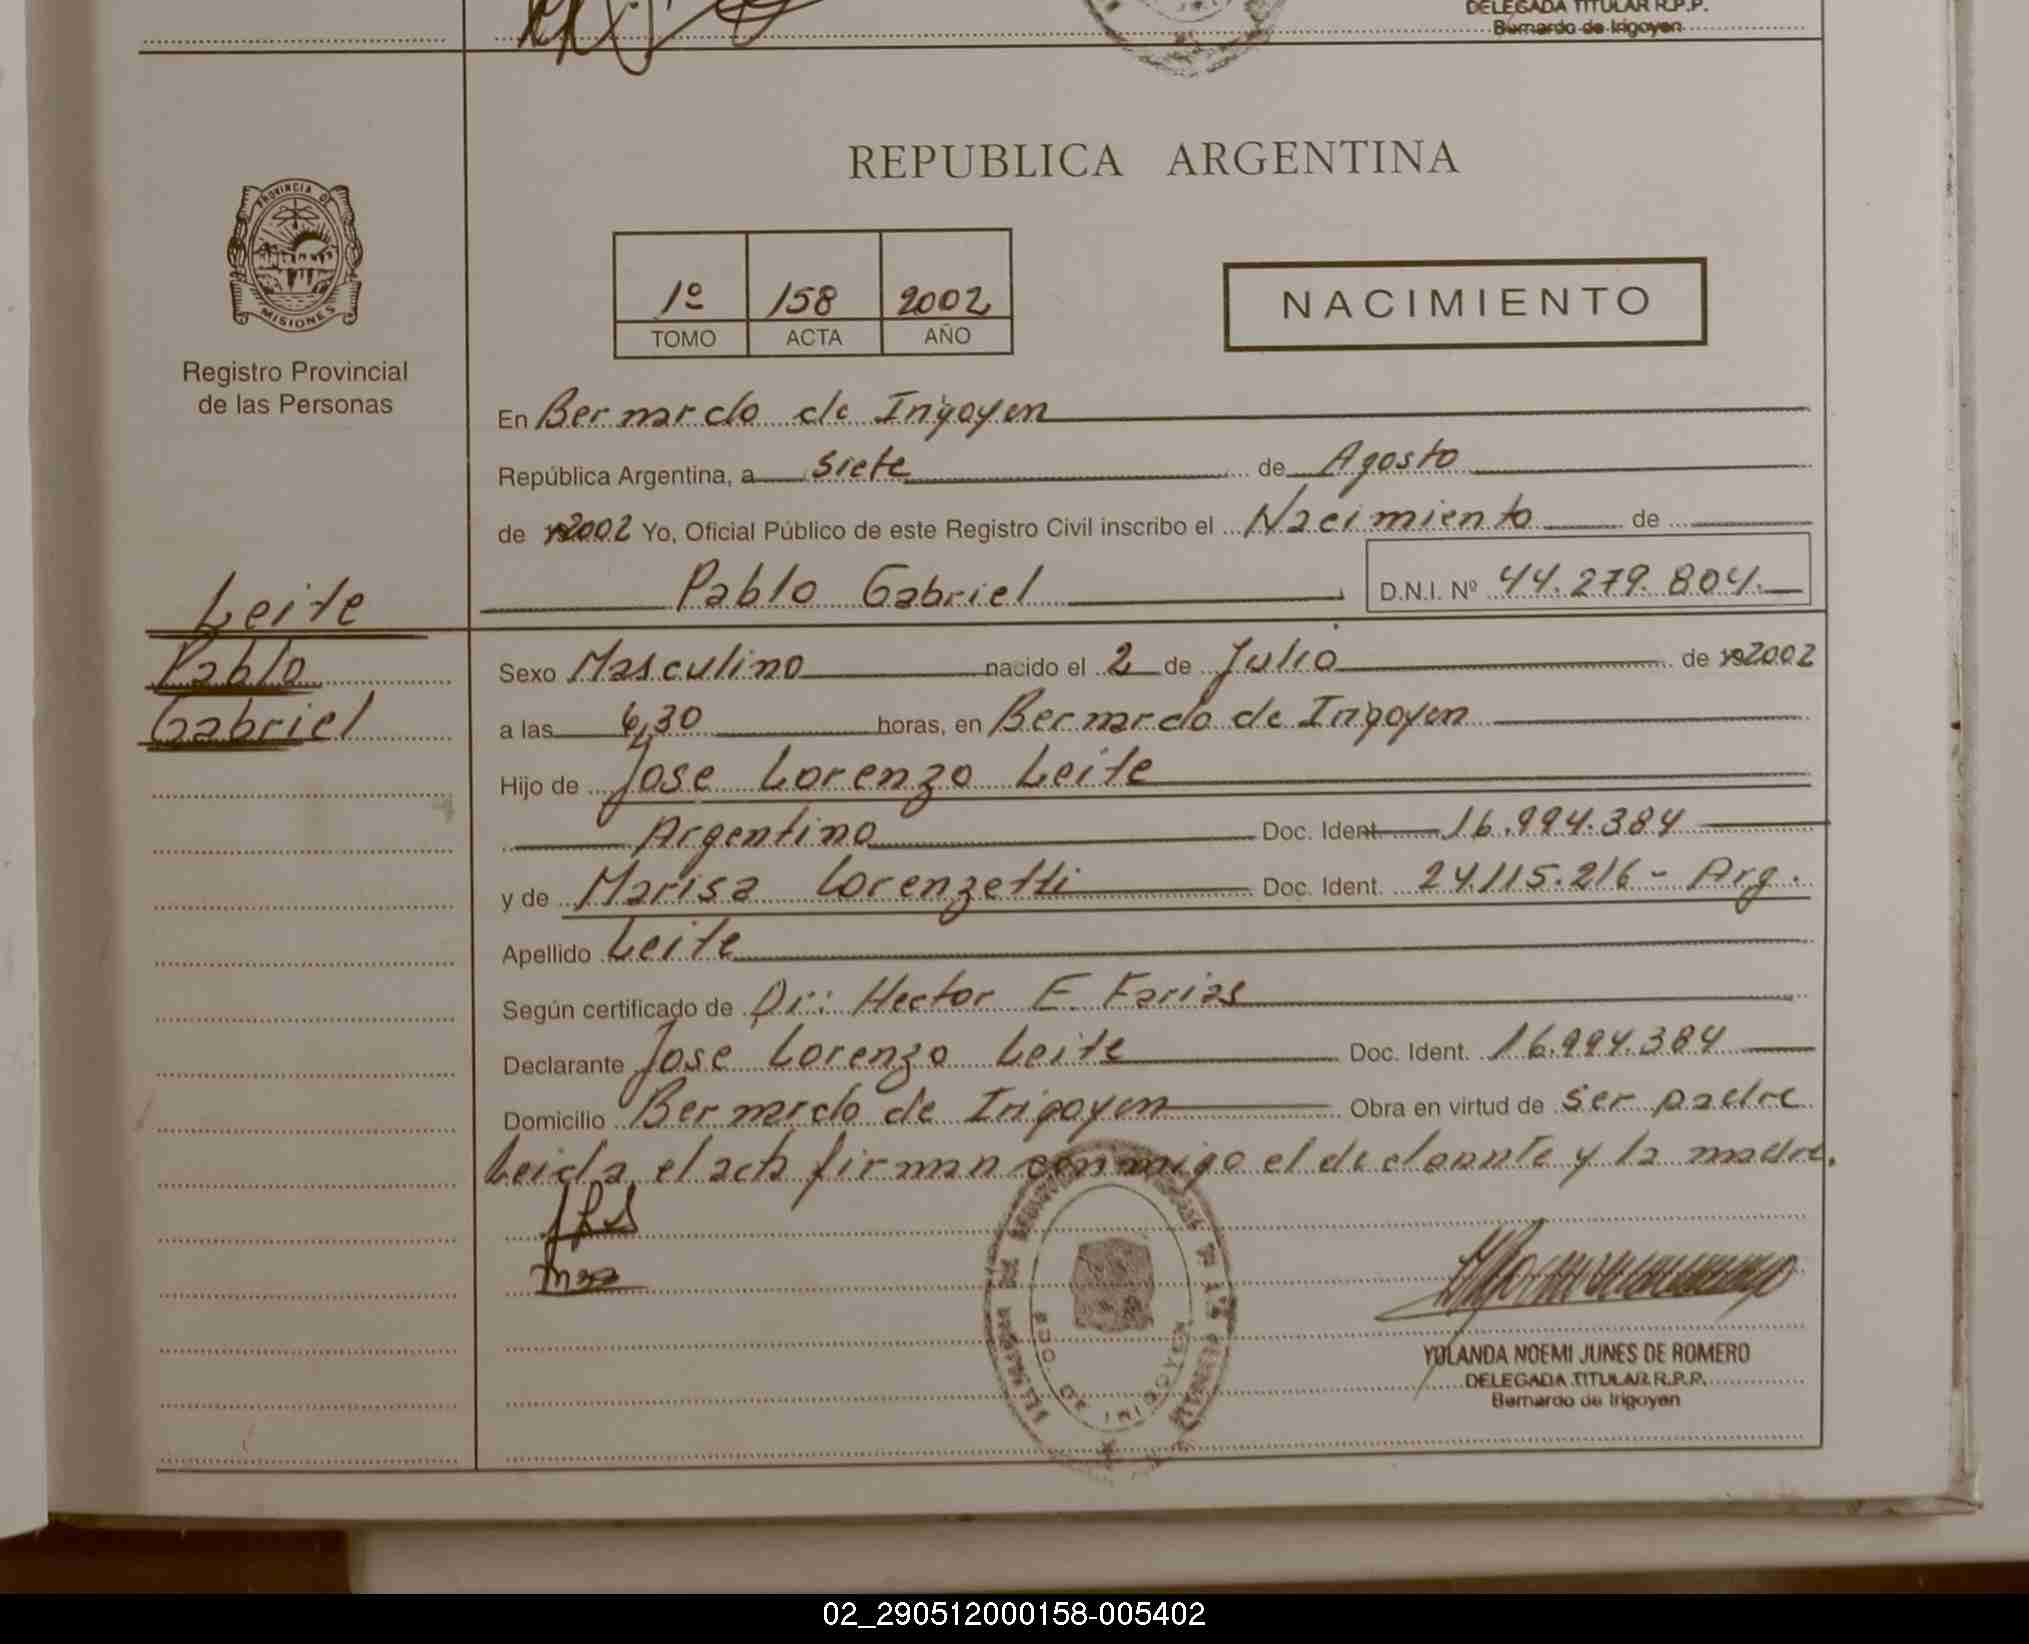 DELEGADA TITULAR R.P.P.
Bernardo de Irigoyen
REPUBLICA ARGENTINA
PROVINCIA DE
MISIONES
Registro Provincial
de las Personas
1º 158 2002
TOMO ACTA AÑO
NACIMIENTO
En Bernardo de Irigoyen
República Argentina, a siete de Agosto
de 2002 Yo, Oficial Público de este Registro Civil inscribo el Nacimiento de
Pablo Gabriel D.N.I. Nº 44.279.804.
Leite
Pablo
Gabriel
Sexo Masculino nacido el 2 de Julio de 2002
a las 6,30 horas, en Bernardo de Irigoyen
Hijo de Jose Lorenzo Leite
Argentino Doc. Ident. 16.994.384
y de Marisa Lorenzetti Doc. Ident. 24.115.216 - Arg.
Apellido Leite
Según certificado de Dr: Hector E. Farias
Declarante Jose Lorenzo Leite Doc. Ident. 16.994.384
Domicilio Bernardo de Irigoyen Obra en virtud de ser padre
Leida el acta firman conmigo el declarante y la madre.
BDO. DE IRIGOYEN
YOLANDA NOEMI JUNES DE ROMERO
DELEGADA TITULAR R.P.P.
Bernardo de Irigoyen
02_290512000158-005402